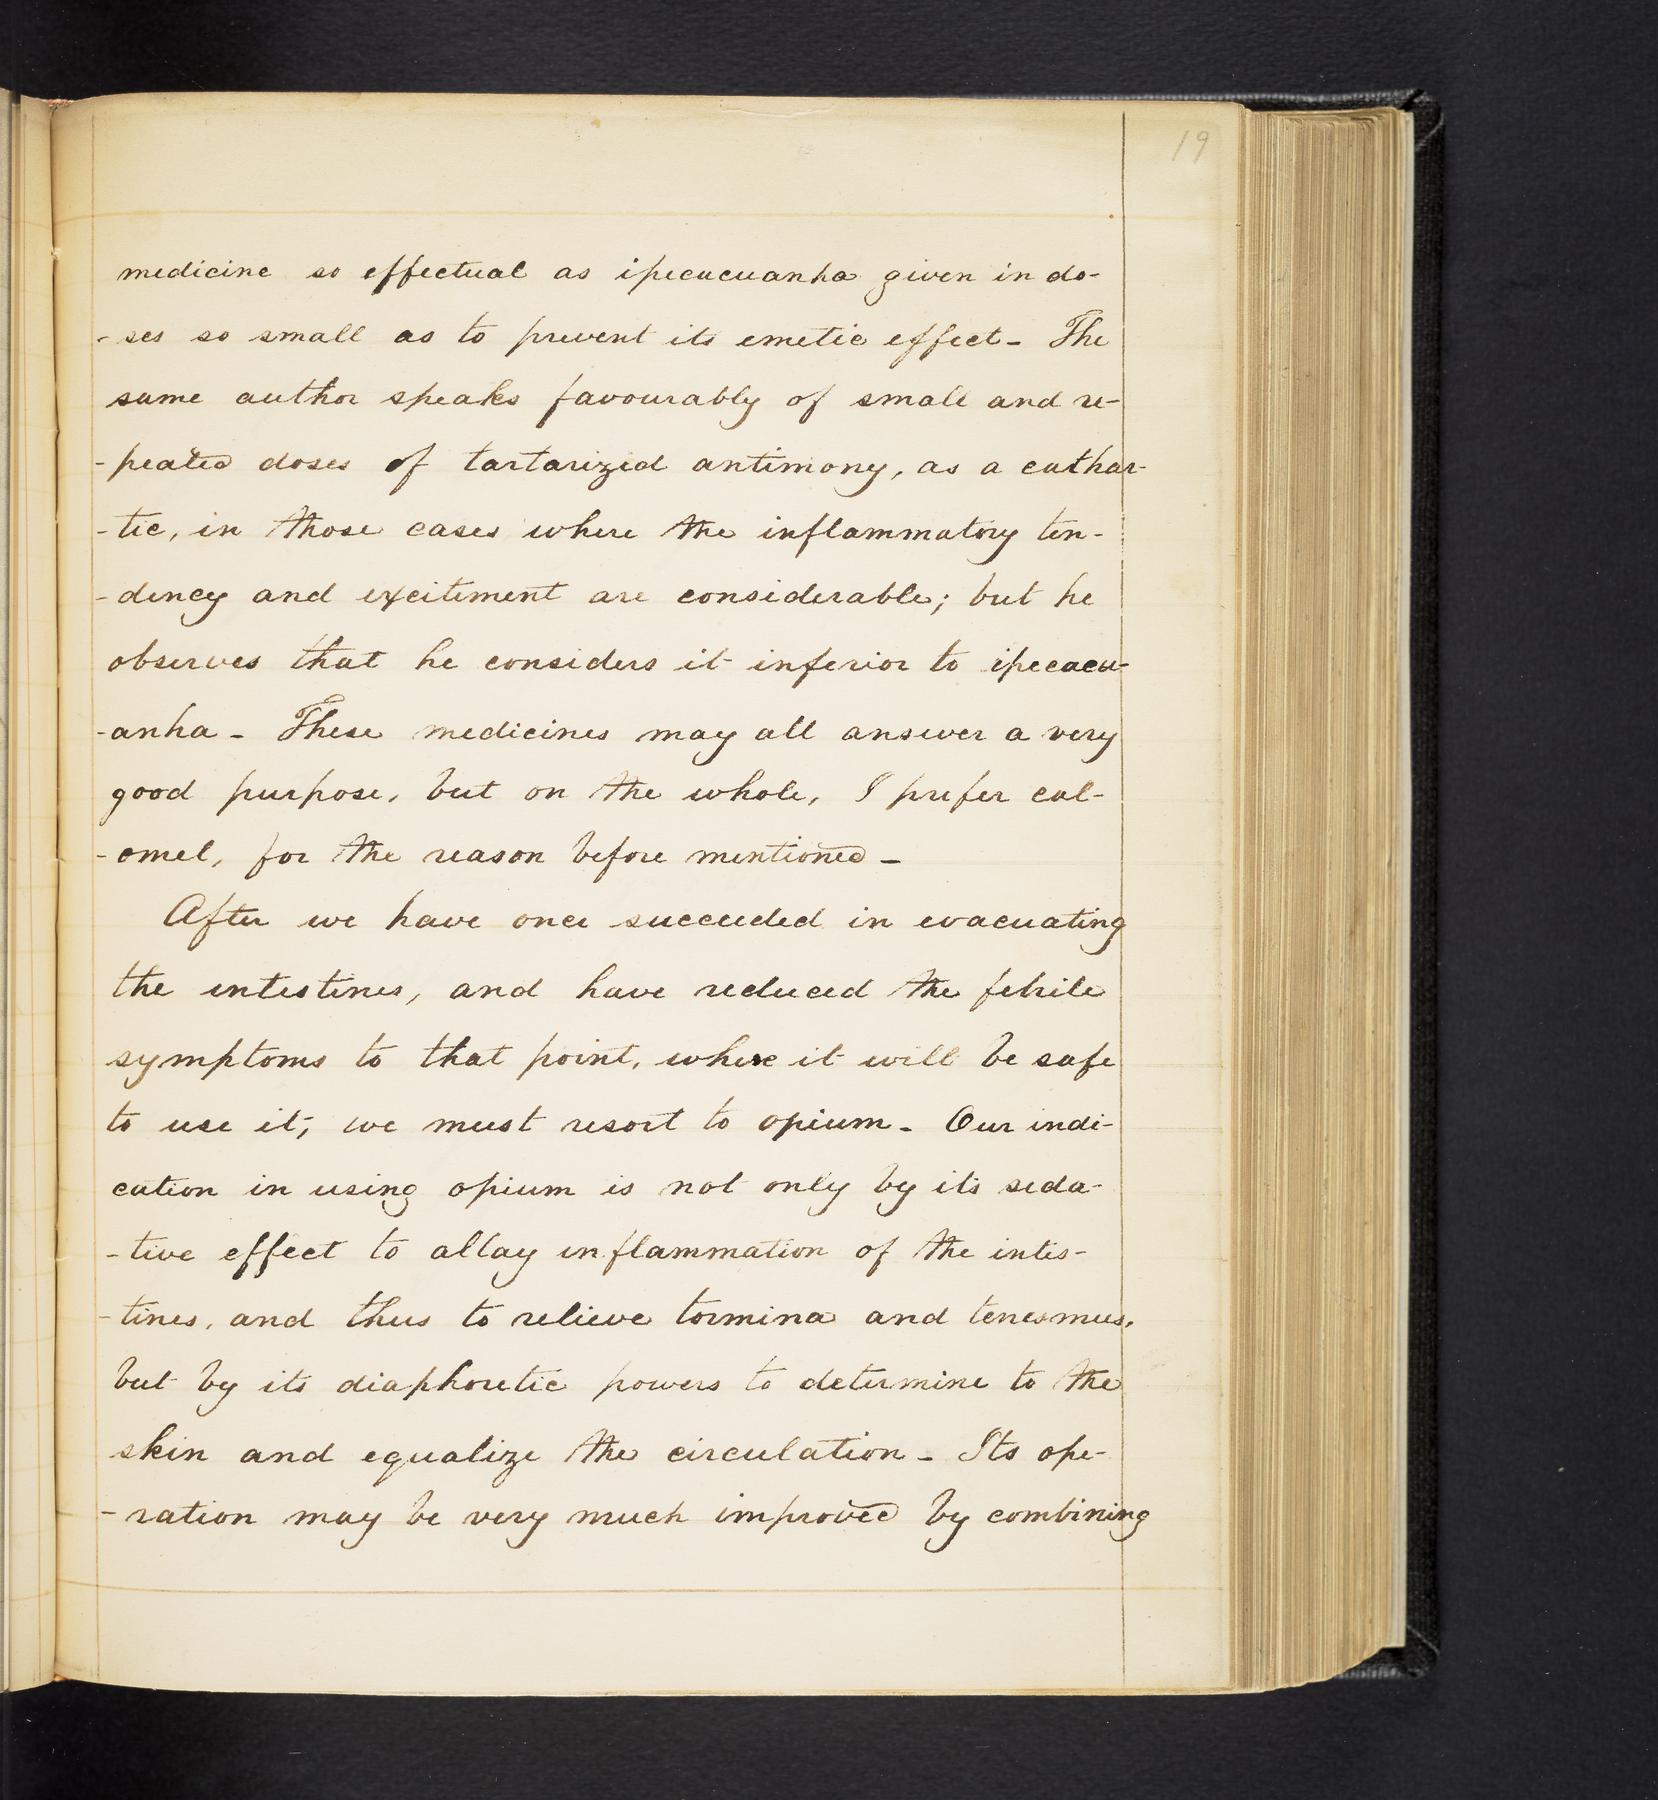 19
medicine so effectual as ipecacuanha given in do-
-ses so small as to prevent its emetic effect - The
same author speaks favourably of small and re-
-peated doses of tartarized antimony, as a cathar-
-tic, in those cases where the inflammatory ten-
-dency and excitement are considerable; but he
observes that he considers it inferior to ipecacu-
-anha - These medicines may all answer a very
good purpose, but on the whole, I prefer cal-
-omel, for the reason before mentioned -
After we have once succeeded in evacuating
the intestines, and have reduced the febrile
symptoms to that point, where it will be safe
to use it; we must resort to opium - Our indi-
cation in using opium is not only by its seda-
-tive effect to allay inflammation of the intes-
-tines, and thus to relieve tormina and tenesmus,
but by its diaphoretic powers to determine to the
skin and equalize the circulation - Its ope-
-ration may be very much improved by combining